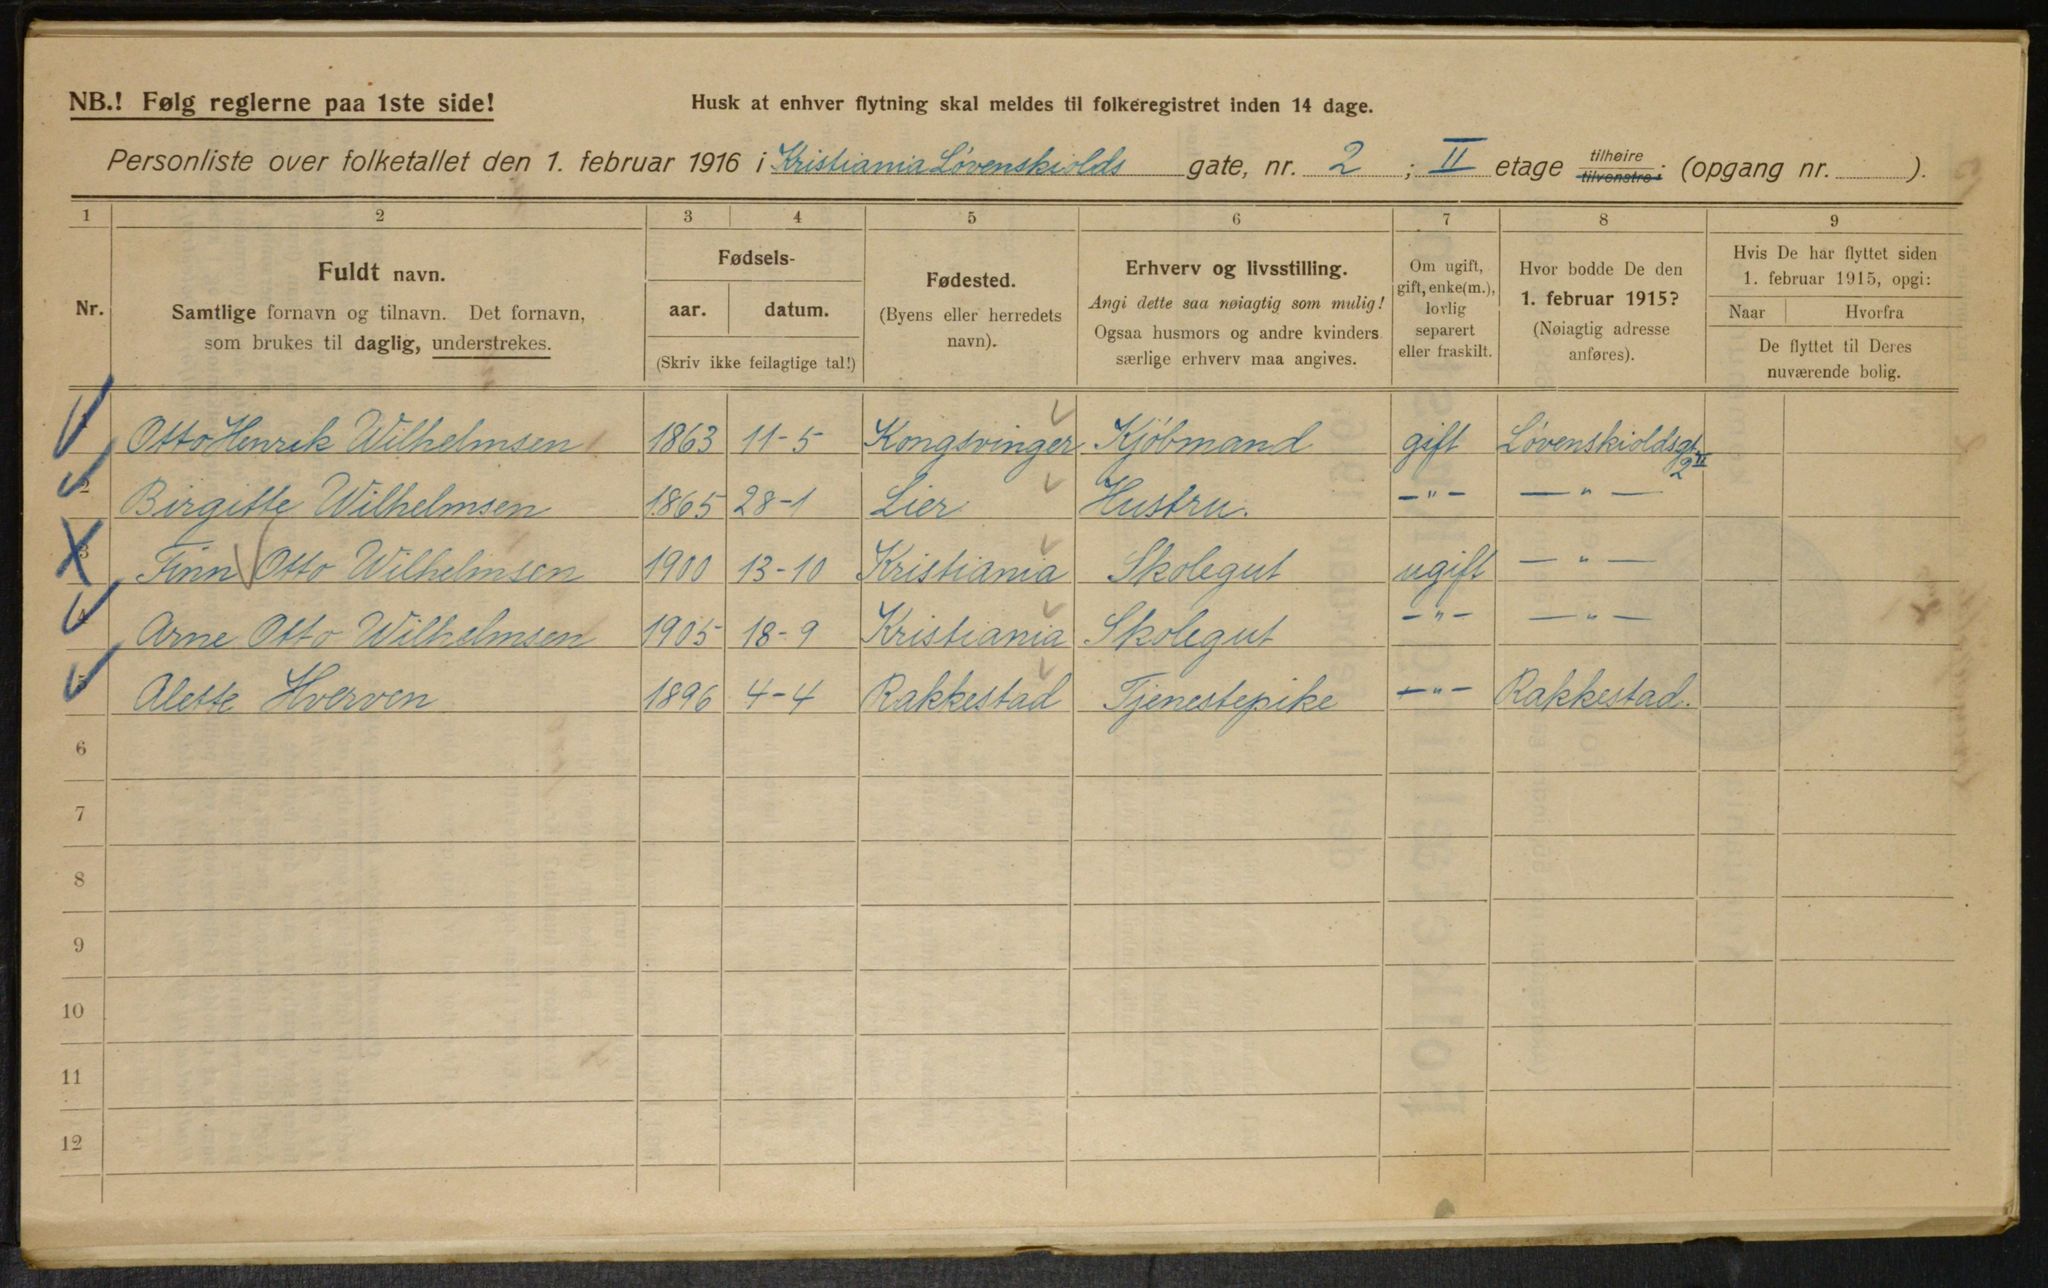 NB.! Følg reglerne paa 1ste side!
Husk at enhver flytning skal meldes til folkeregistret inden 14 dage.
Personliste over folketallet den 1. februar 1916 i Kristiania Løvenskiolds gate, nr. 2 ; II etage tilhøire tilvenstre; (opgang nr. ).
1 2 3 4 5 6 7 8 9
Nr.
Fuldt navn.
Samtlige fornavn og tilnavn. Det fornavn,
som brukes til daglig, understrekes.
Fødsels-
aar. datum.
(Skriv ikke feilagtige tal!)
Fødested.
(Byens eller herredets
navn).
Erhverv og livsstilling.
Angi dette saa nøiagtig som mulig!
Ogsaa husmors og andre kvinders
særlige erhverv maa angives.
Om ugift,
gift, enke(m.),
lovlig
separert
eller fraskilt.
Hvor bodde De den
1. februar 1915?
(Nøiagtig adresse
anføres).
Hvis De har flyttet siden
1. februar 1915, opgi:
Naar Hvorfra
De flyttet til Deres
nuværende bolig.
Otto Henrik Wilhelmsen 1863 11-5 Kongsvinger Kjøbmand gift Løvenskioldsgt. 2 II
2 Birgitte Wilhelmsen 1865 28-1 Lier Hustru. -"- -"-
3 Finn Otto Wilhelmsen 1900 13-10 Kristiania Skolegut ugift -"-
4 Arne Otto Wilhelmsen 1905 18-9 Kristiania Skolegut -"- -"-
5 Alette Hverven 1896 4-4 Rakkestad Tjenestepike -"- Rakkestad.
6
7
8
9
10
11
12